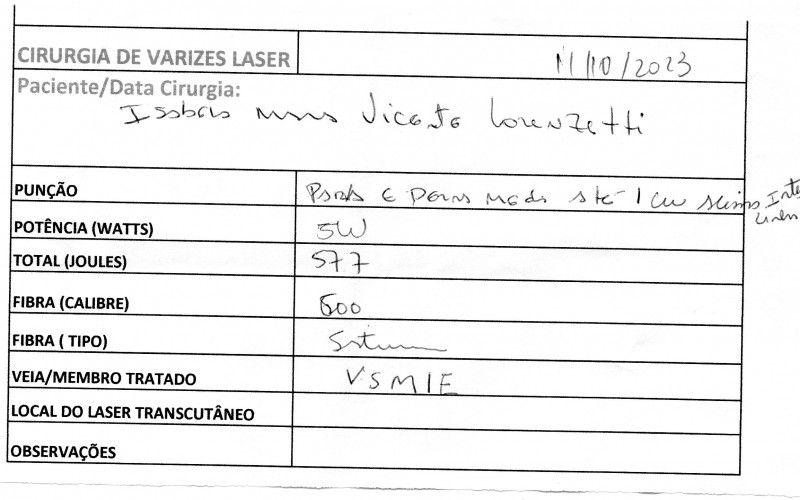 CIRURGIA DE VARIZES LASER 11/10/2023
Paciente/Data Cirurgia:
Vicente Lorenzetti
PUNÇÃO até 1 cm
POTÊNCIA (WATTS) 5W
TOTAL (JOULES) 577
FIBRA (CALIBRE) 600
FIBRA ( TIPO)
VEIA/MEMBRO TRATADO VSMIE
LOCAL DO LASER TRANSCUTÂNEO
OBSERVAÇÕES